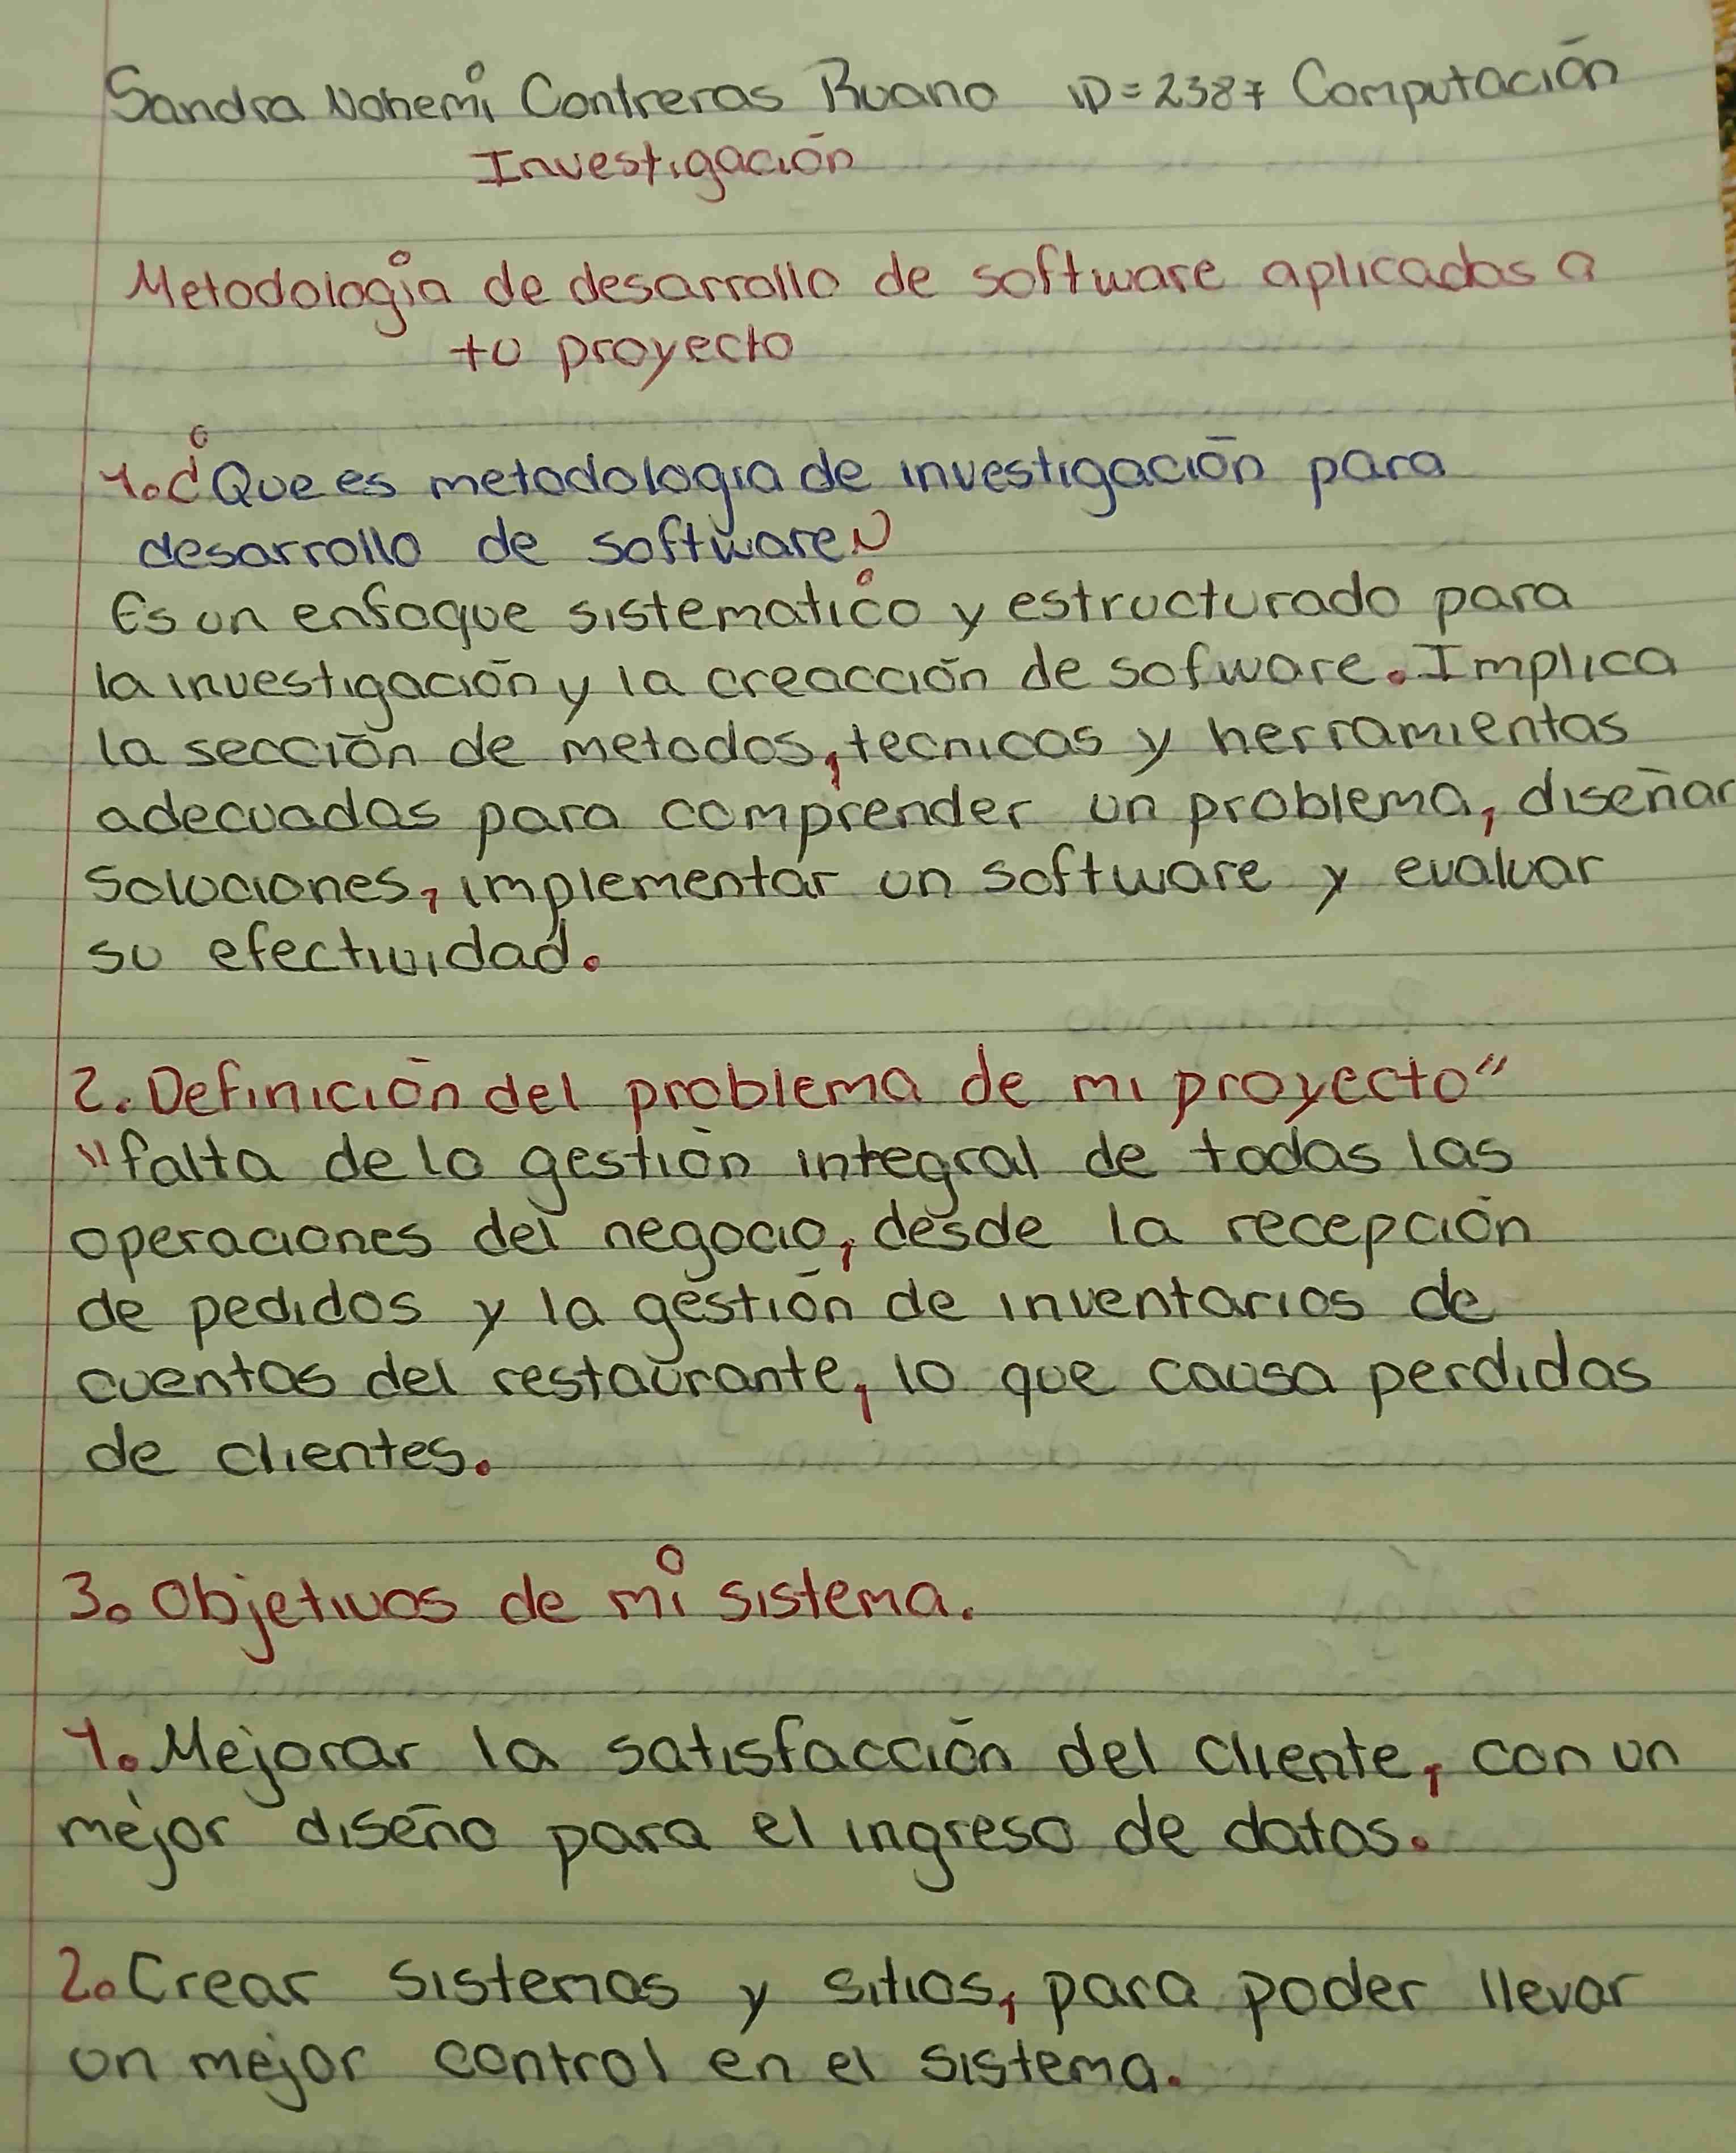 Sandra Nohemi Contreras Ruano ID=2387 Computación
Investigación
Metodologia de desarrollo de software aplicados a
tu proyecto
1.¿Que es metodologia de investigación para
desarrollo de software?
Es un enfoque sistematico y estructurado para
la investigación y la creacción de sofware. Implica
la sección de metodos, tecnicas y herramientas
adecuadas para comprender un problema, diseñar
soluciones, implementar un software y evaluar
su efectividad.
2. Definición del problema de mi proyecto"
"falta de lo gestión integral de todas las
operaciones del negocio, desde la recepción
de pedidos y la gestión de inventarios de
cuentas del restaurante, lo que causa perdidas
de clientes.
3. Objetivos de mi sistema.
1. Mejorar la satisfacción del cliente, con un
mejor diseño para el ingreso de datos.
2. Crear sistemas y sitios, para poder llevar
un mejor control en el sistema.